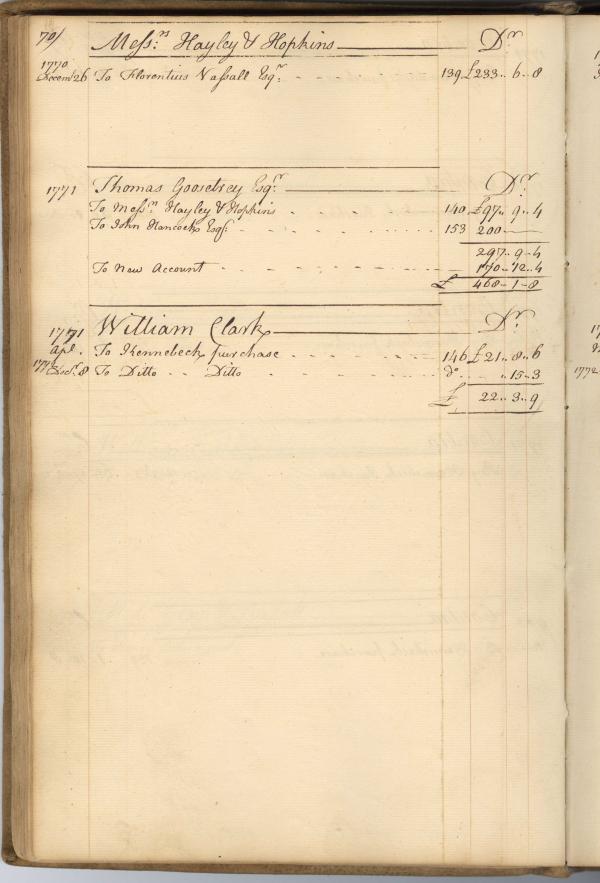 70/
Mess:rs Hayley & Hopkins Dr
1770
Decem 26 To Florentius Vassall Esqr: 139 £233.. 6.. 8
1771 Thomas Goostrey Esqr: Dr
To Messrs Hayley & Hopkins 140 £97.. 9.. 4
To John Hancock Esqr: 153 200
297.. 9.. 4
To New Account 170.. 12.. 4
£ 468 - 1 - 8
1771 William Clark Dr
Apl. To Kennebeck purchase 146 £21.. 8.. 6
Decr. 8 To Ditto Ditto do ,, 15.. 3
£ 22.. 3.. 9
1772